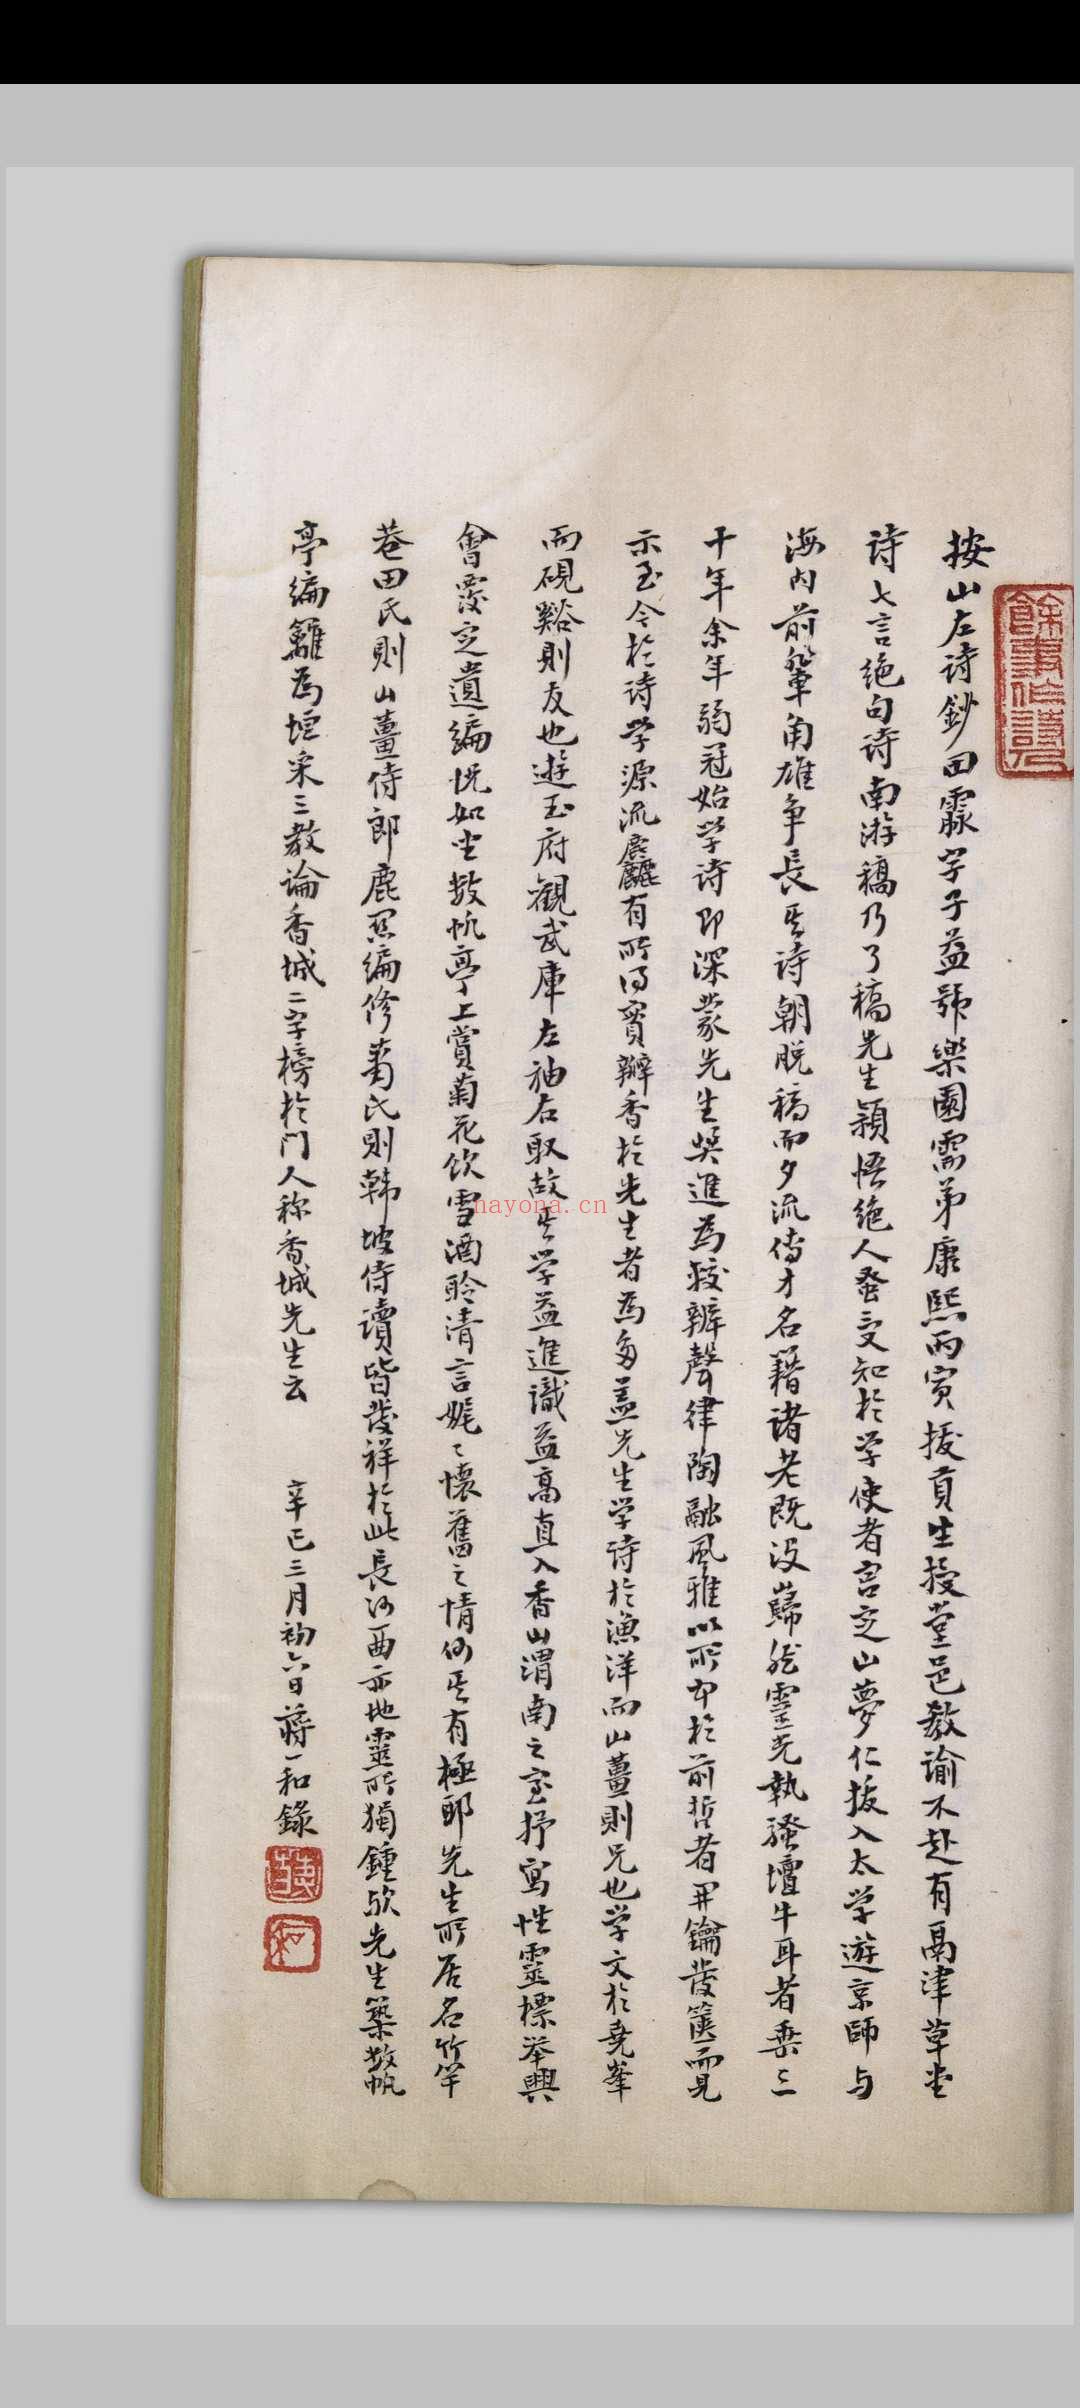 按山左詩鈔田霡字子益號樂園需弟康熙丙寅拔貢生授堂邑教諭不赴有鬲津草堂
詩七言絶句詩南游稿乃了稿先生穎悟絶人蚤受知於学使者宫定山夢仁拔入太学遊京師与
海内前輩角雄争長其詩朝脱稿而夕流傳才名籍諸老既没巋然靈光執騷壇牛耳者垂三
十年余年弱冠始学诗即深蒙先生奖進為挍辨聲律陶融風雅以所本於前哲者開鑰發篋而見
示至今於詩学源流麤有所得實瓣香於先生者為多盖先生学诗於漁洋而山薑則兄也学文於堯峯
而硯谿則友也遊玉府觀武庫左袖右取故其学益進識益高直入香山渭南之室抒寫性靈標举興
會覆定遺編恍如坐數帆亭上賞菊花飲雪酒聆清言娓〻懷舊之情何其有極耶先生所居名竹竿
巷田氏則山薑侍郎鹿關編修蕭氏則韩坡侍讀皆發祥於此長河西亦地靈所獨鍾欤先生築數帆
亭編籬為垣采三教論香城二字榜於門人称香城先生云 辛巳三月初六日蔣一和錄
nayona.cn